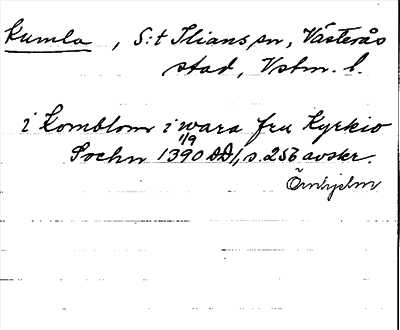 Kumla, S:t Ilians sn, Västerås
stad, Vstm. l.
i Komblom i wara fru Kyrkio
Sochn 1390 1/9 DD1, s. 256 avskr.
Örnhjelm